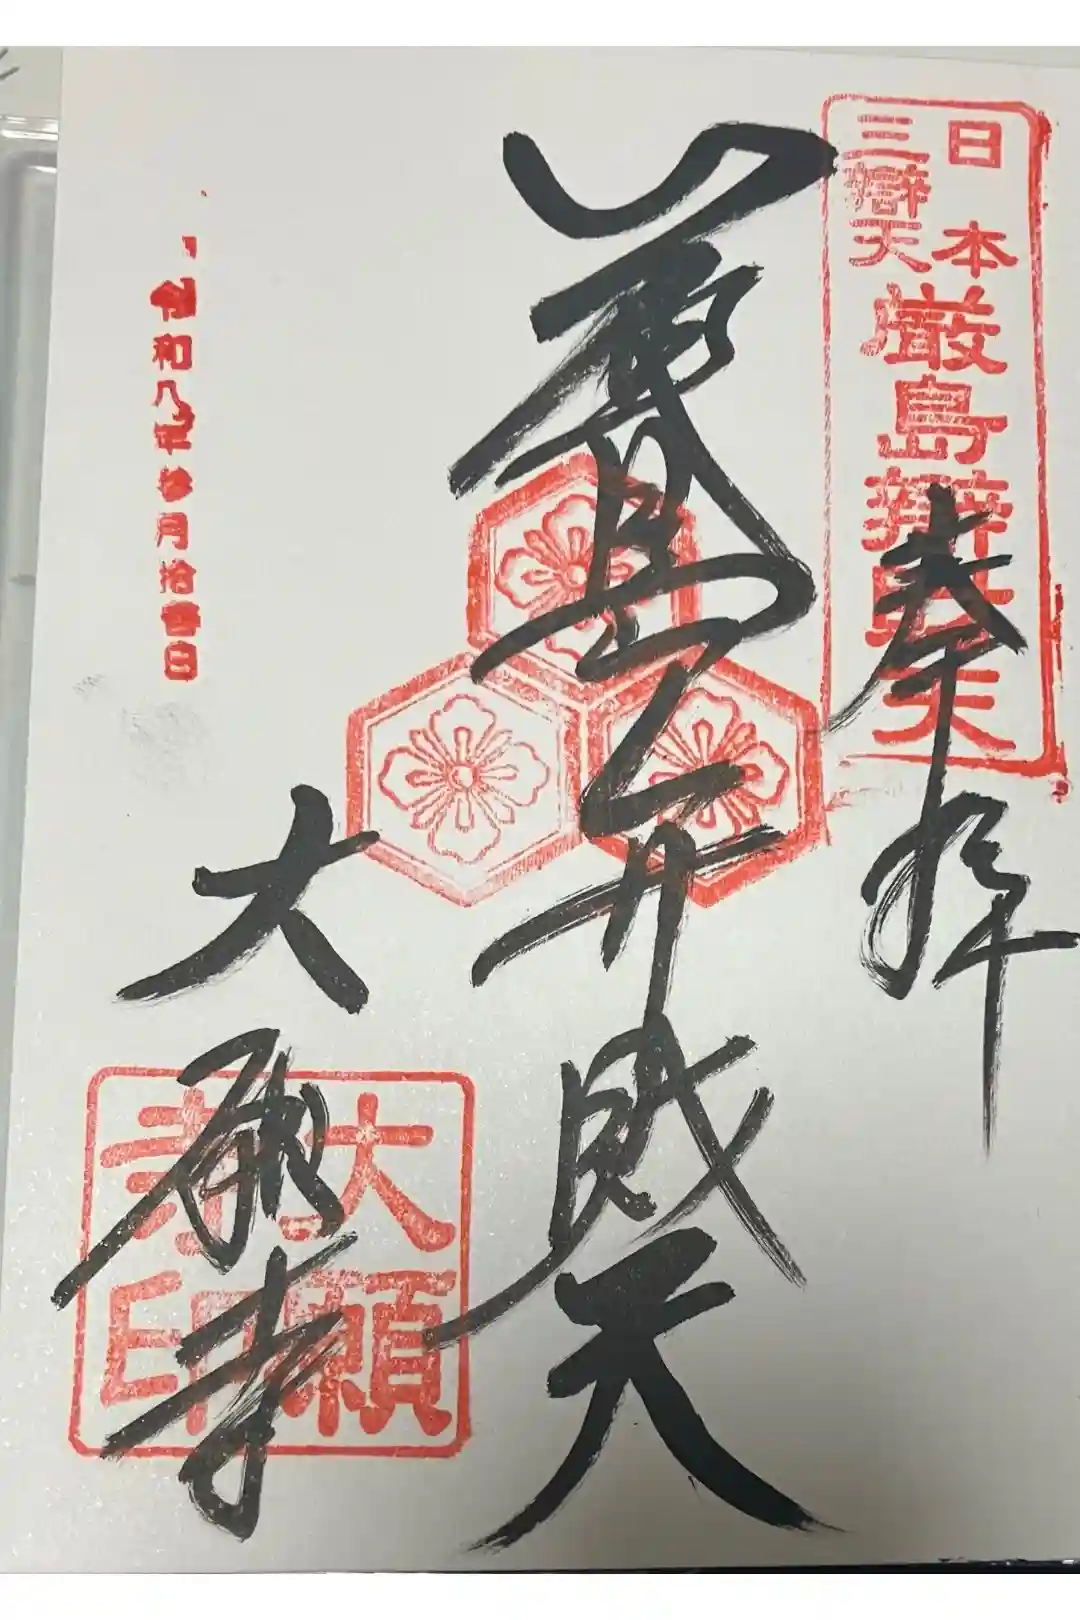 日本
三辯天
厳島辯財天
奉拝
厳島弁財天
令和八年参月拾壹日
大願寺
大願
寺印